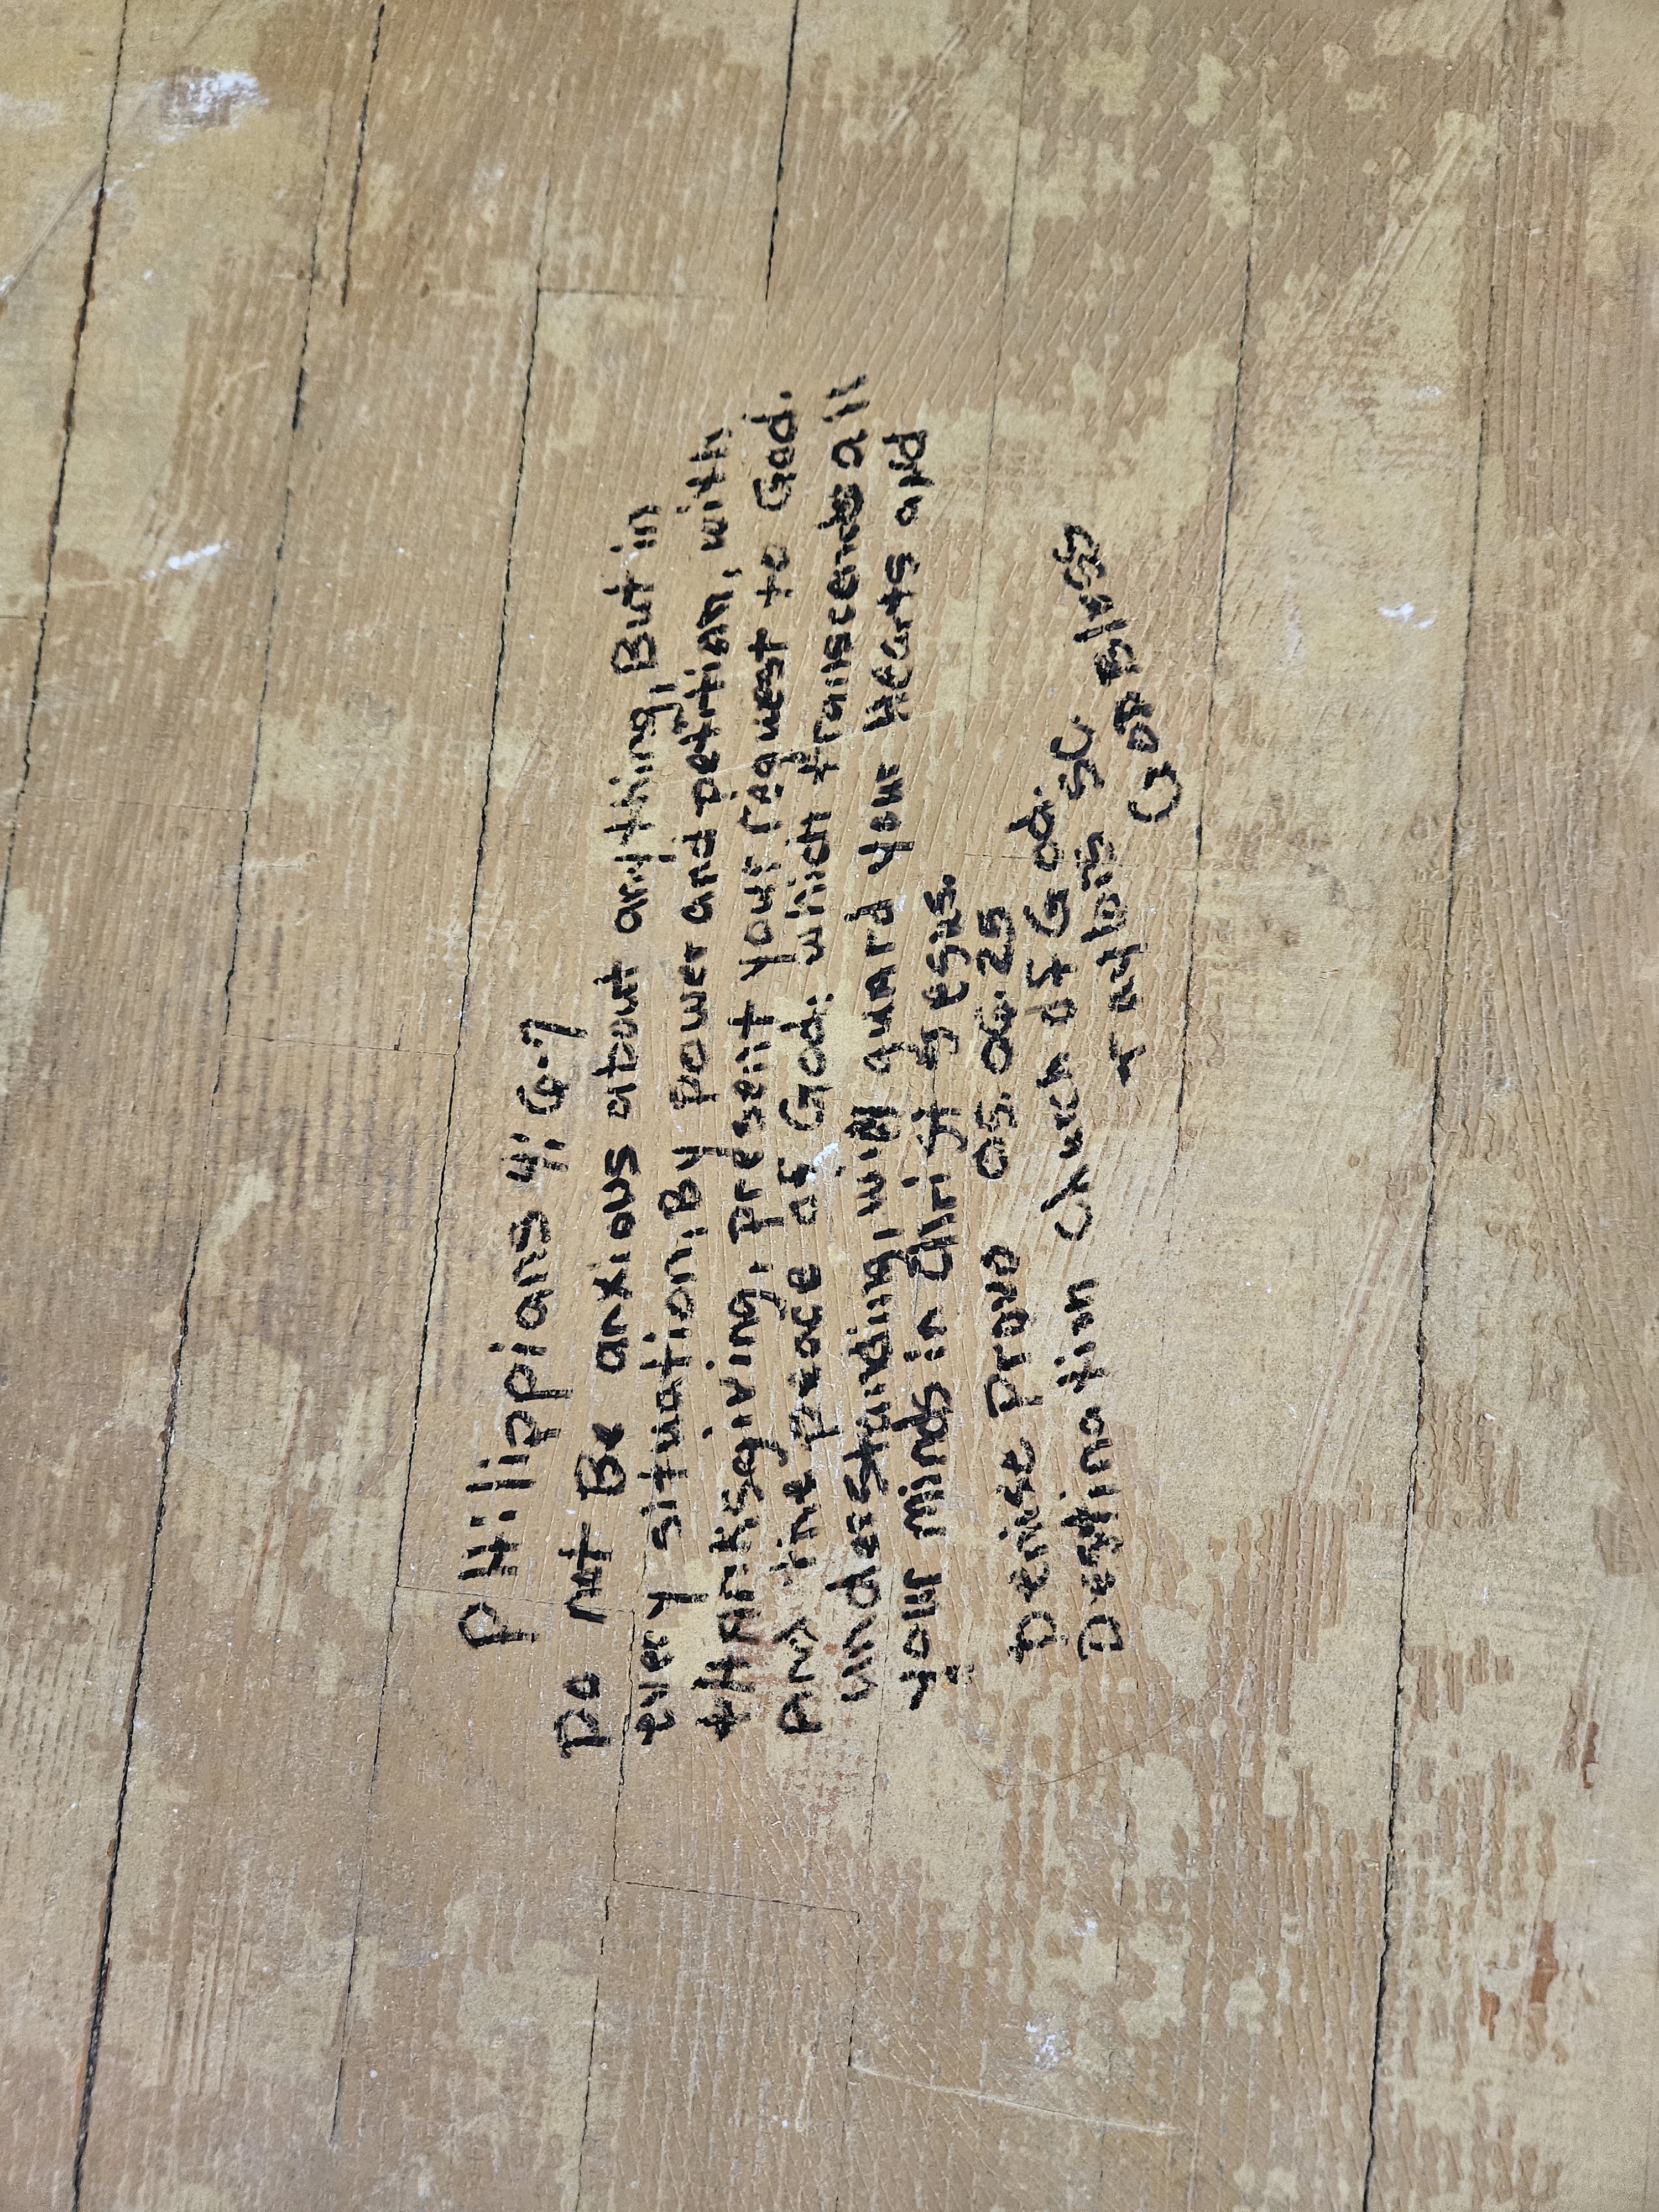 PHillippians 4:6-7
Do not Be anxious about anything, But in
every situation, By power and petition, with
tHanksgiving, present your request to God.
And the peace of God. which transcends all
understanding, will guard your Hearts and
your minds in Christ jesus.
Denise Pravo 05.06.25
Destination church of God.
Taylors SC
God Bless